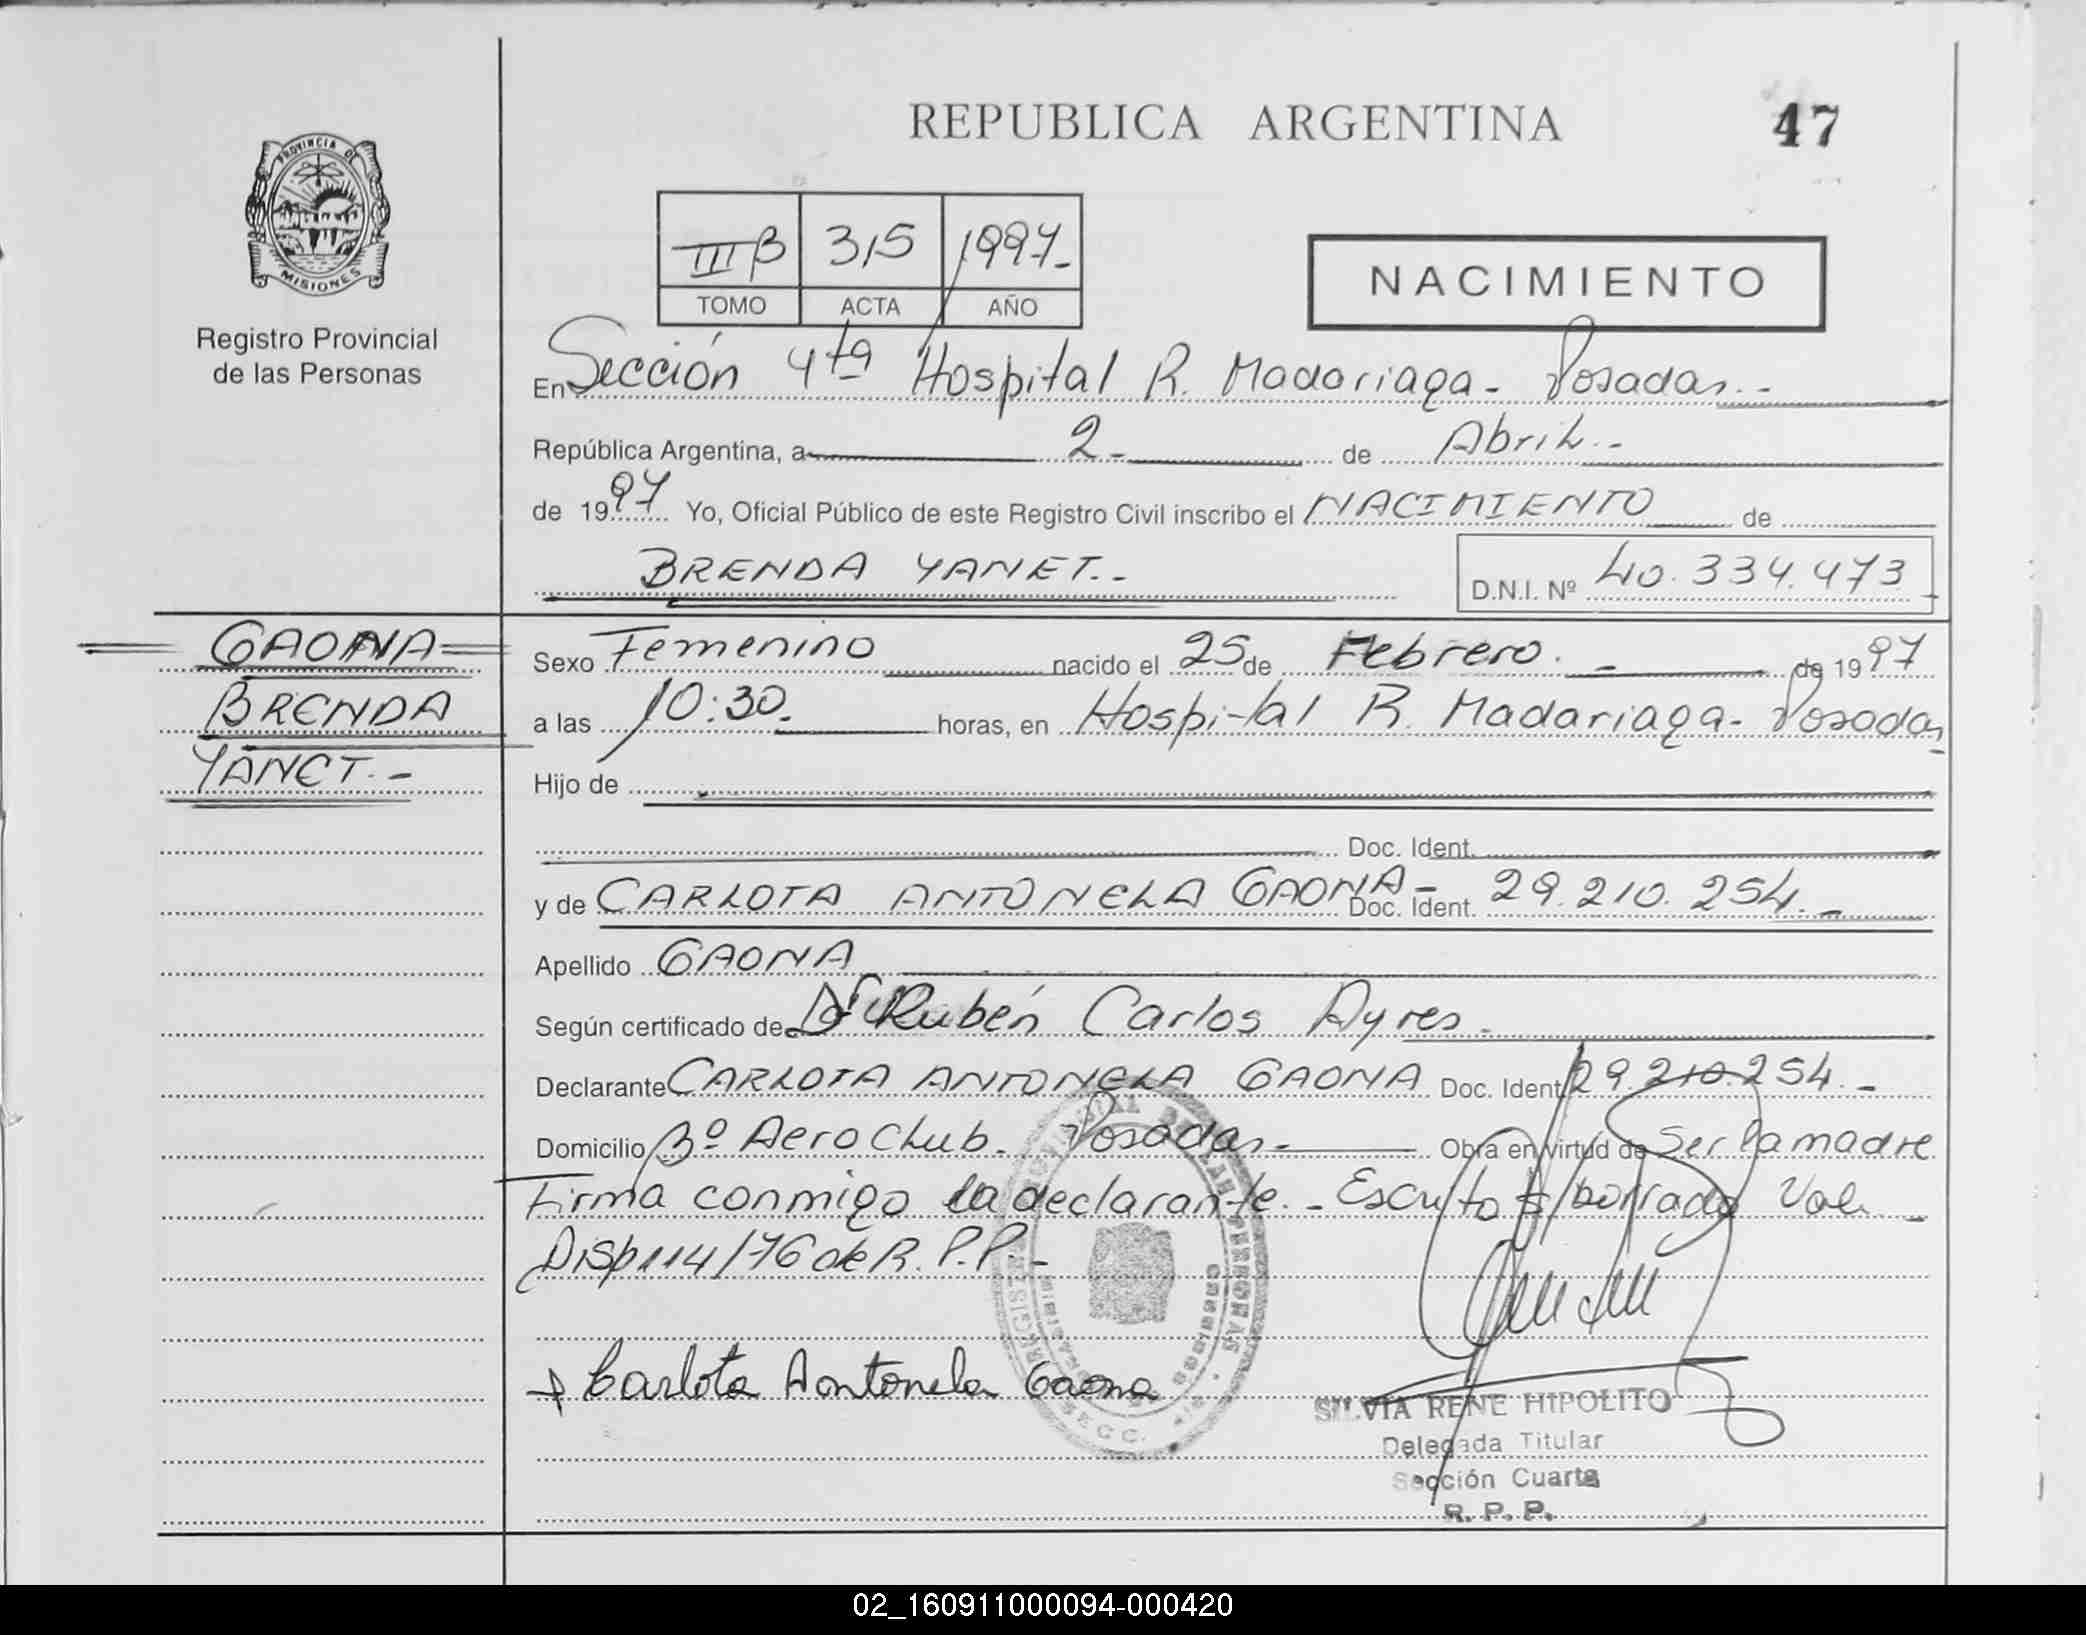 REPUBLICA ARGENTINA
47
PROVINCIA DE
MISIONES
Registro Provincial
de las Personas
III B 315 1997.-
TOMO ACTA AÑO
NACIMIENTO
En Sección 4ta Hospital R. Madariaga - Posadas.-
República Argentina, a 2.- de Abril.-
de 1997 Yo, Oficial Público de este Registro Civil inscribo el NACIMIENTO de
BRENDA YANET.-
D.N.I. Nº 40.334.473
GAONA
BRENDA
YANET.-
Sexo Femenino nacido el 25 de Febrero. - de 1997
a las 10:30. horas, en Hospital R. Madariaga - Posadas
Hijo de
Doc. Ident.
y de CARLOTA ANTONELA GAONA - Doc. Ident. 29.210.254.-
Apellido GAONA
Según certificado de Rubén Carlos Ayres.
Declarante CARLOTA ANTONELA GAONA Doc. Ident. 29.210.254.-
Domicilio Bº Aero Club. Posadas.- Obra en virtud de Ser la madre
Firma conmigo la declarante.- Escrito s/borrado Vale.
Disp 114/76 de R.P.P.-
Carlota Antonela Gaona
SILVIA RENE HIPOLITO
Delegada Titular
Sección Cuarta
R. P. P.
02_160911000094-000420